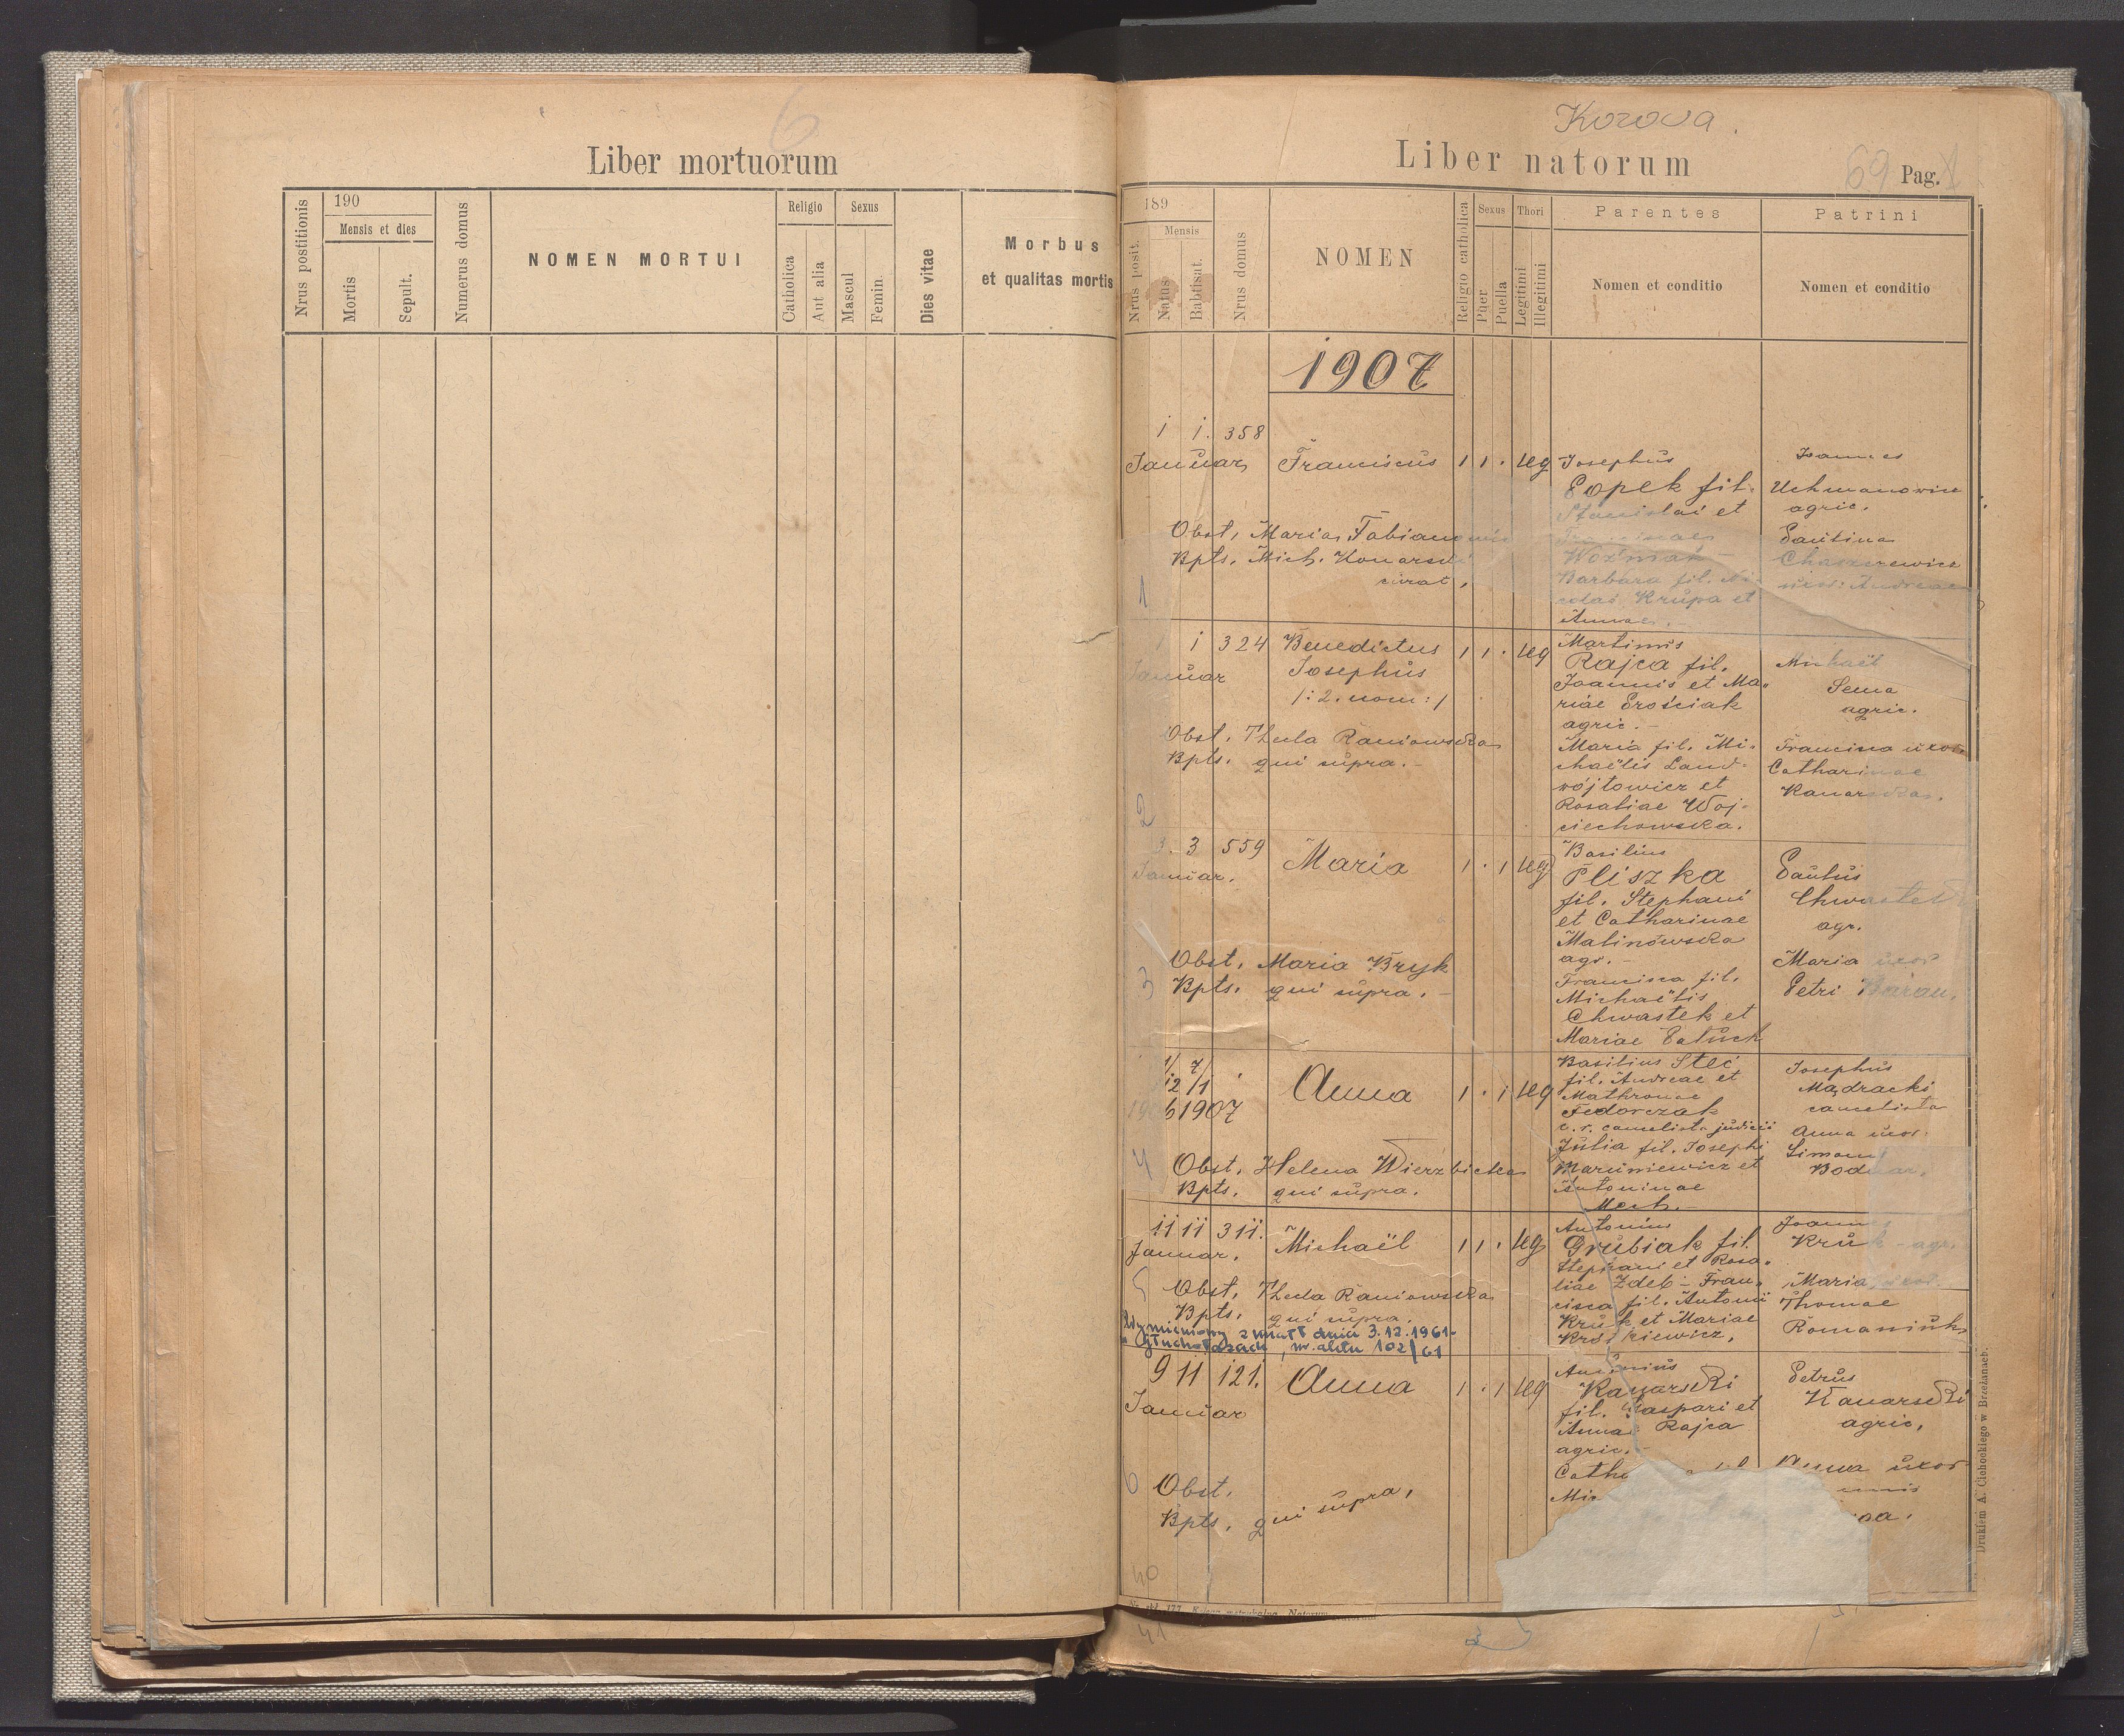 6
Liber mortuorum
Nrus postitionis
190
Mensis et dies
Mortis
Sepult.
Numerus domus
NOMEN MORTUI
Religio
Catholica
Aut alia
Sexus
Mascul
Femin.
Dies vitae
Morbus
et qualitas mortis
Korova.
Liber natorum
69 Pag.
189
Nrus posit.
Mensis
Natus
Babtisat.
Nrus domus
NOMEN
Religio catholica
Sexus
Puer
Puella
Thori
Legitimi
Illegitimi
Parentes
Nomen et conditio
Patrini
Nomen et conditio
1907
1 1. 358
Januar, Franciscus 1 1 . leg
Josephus
Copek fil.
Stanislai et
Woźniak
Barbara fil. Ni-
colai Krupa et
Annae.
Joannes
Uchmanowicz
agric.
Paulina
Chaszczewicz
uxor: Andreae
Obst. Maria Fabian
Bpts. Mich. Konarski
curat.
1
1 324 Benedictus 1 1 . leg
Januar Josephus
/: 2. nom :/
Martinus
Rajca fil.
Joannis et Ma-
riae Erościak
agric.-
Maria fil. Mi-
chaëlis Land-
wójtowicz et
Rosaliae Woj-
ciechowska.
Michaël
Sema
agric.
Francisca uxor
Catharinae
Kanarska.
Obst. Thecla Raniowska
Bpts. qui supra.-
2
3 559 Maria 1 . 1 leg
Januar.
Basilius
Pliszka
fil. Stephani
et Catharinae
Malinowska
agr.-
Francisca fil.
Michaëlis
Chwastek et
Mariae Patuch
Paulus
Chwastek
agr.
Maria uxor
Petri Baran.
Obst. Maria Bryk
3 Bpts. qui supra.-
1/12 7/1
1906 1907 Anna 1 . 1 leg
Basilius Stec
fil. Andreae et
Mathronae
Fedorczak
c. r. cancelista judicii
Julia fil. Josephi
Marciniewicz et
Antoninae
Mech.-
Josephus
Mądracki
cancelista
Anna uxor.
Simoni
Bodnar.
4 Obst. Helena Wierzbicka
Bpts. qui supra.
11 11 311. Michaël 1 1 . leg
Januar.
Antonius
Grubiak fil.
Stephani et Rosa-
liae Zdeb - Fran-
cisca fil. Antonii
Kruk et Mariae
Joannes
Kruk - agr.
Maria uxor
Thomae
Romaniuk
5 Obst. Thecla Raniowska
Bpts. qui supra.
Wymieniony zmarł dnia 3.12.1961
w Głuchołazach, nr. aktu 102/61
9 11 121. Anna 1 . 1 leg
Januar
Antonius
Kanarski
fil. Gaspari et
Annae Rajca
agric.-
Petrus
Kanarski
agric.
Anna uxor
6 Obst.
Bpts. qui supra.
40
41
Drukiem A. Cichockiego w Brzeżanach.